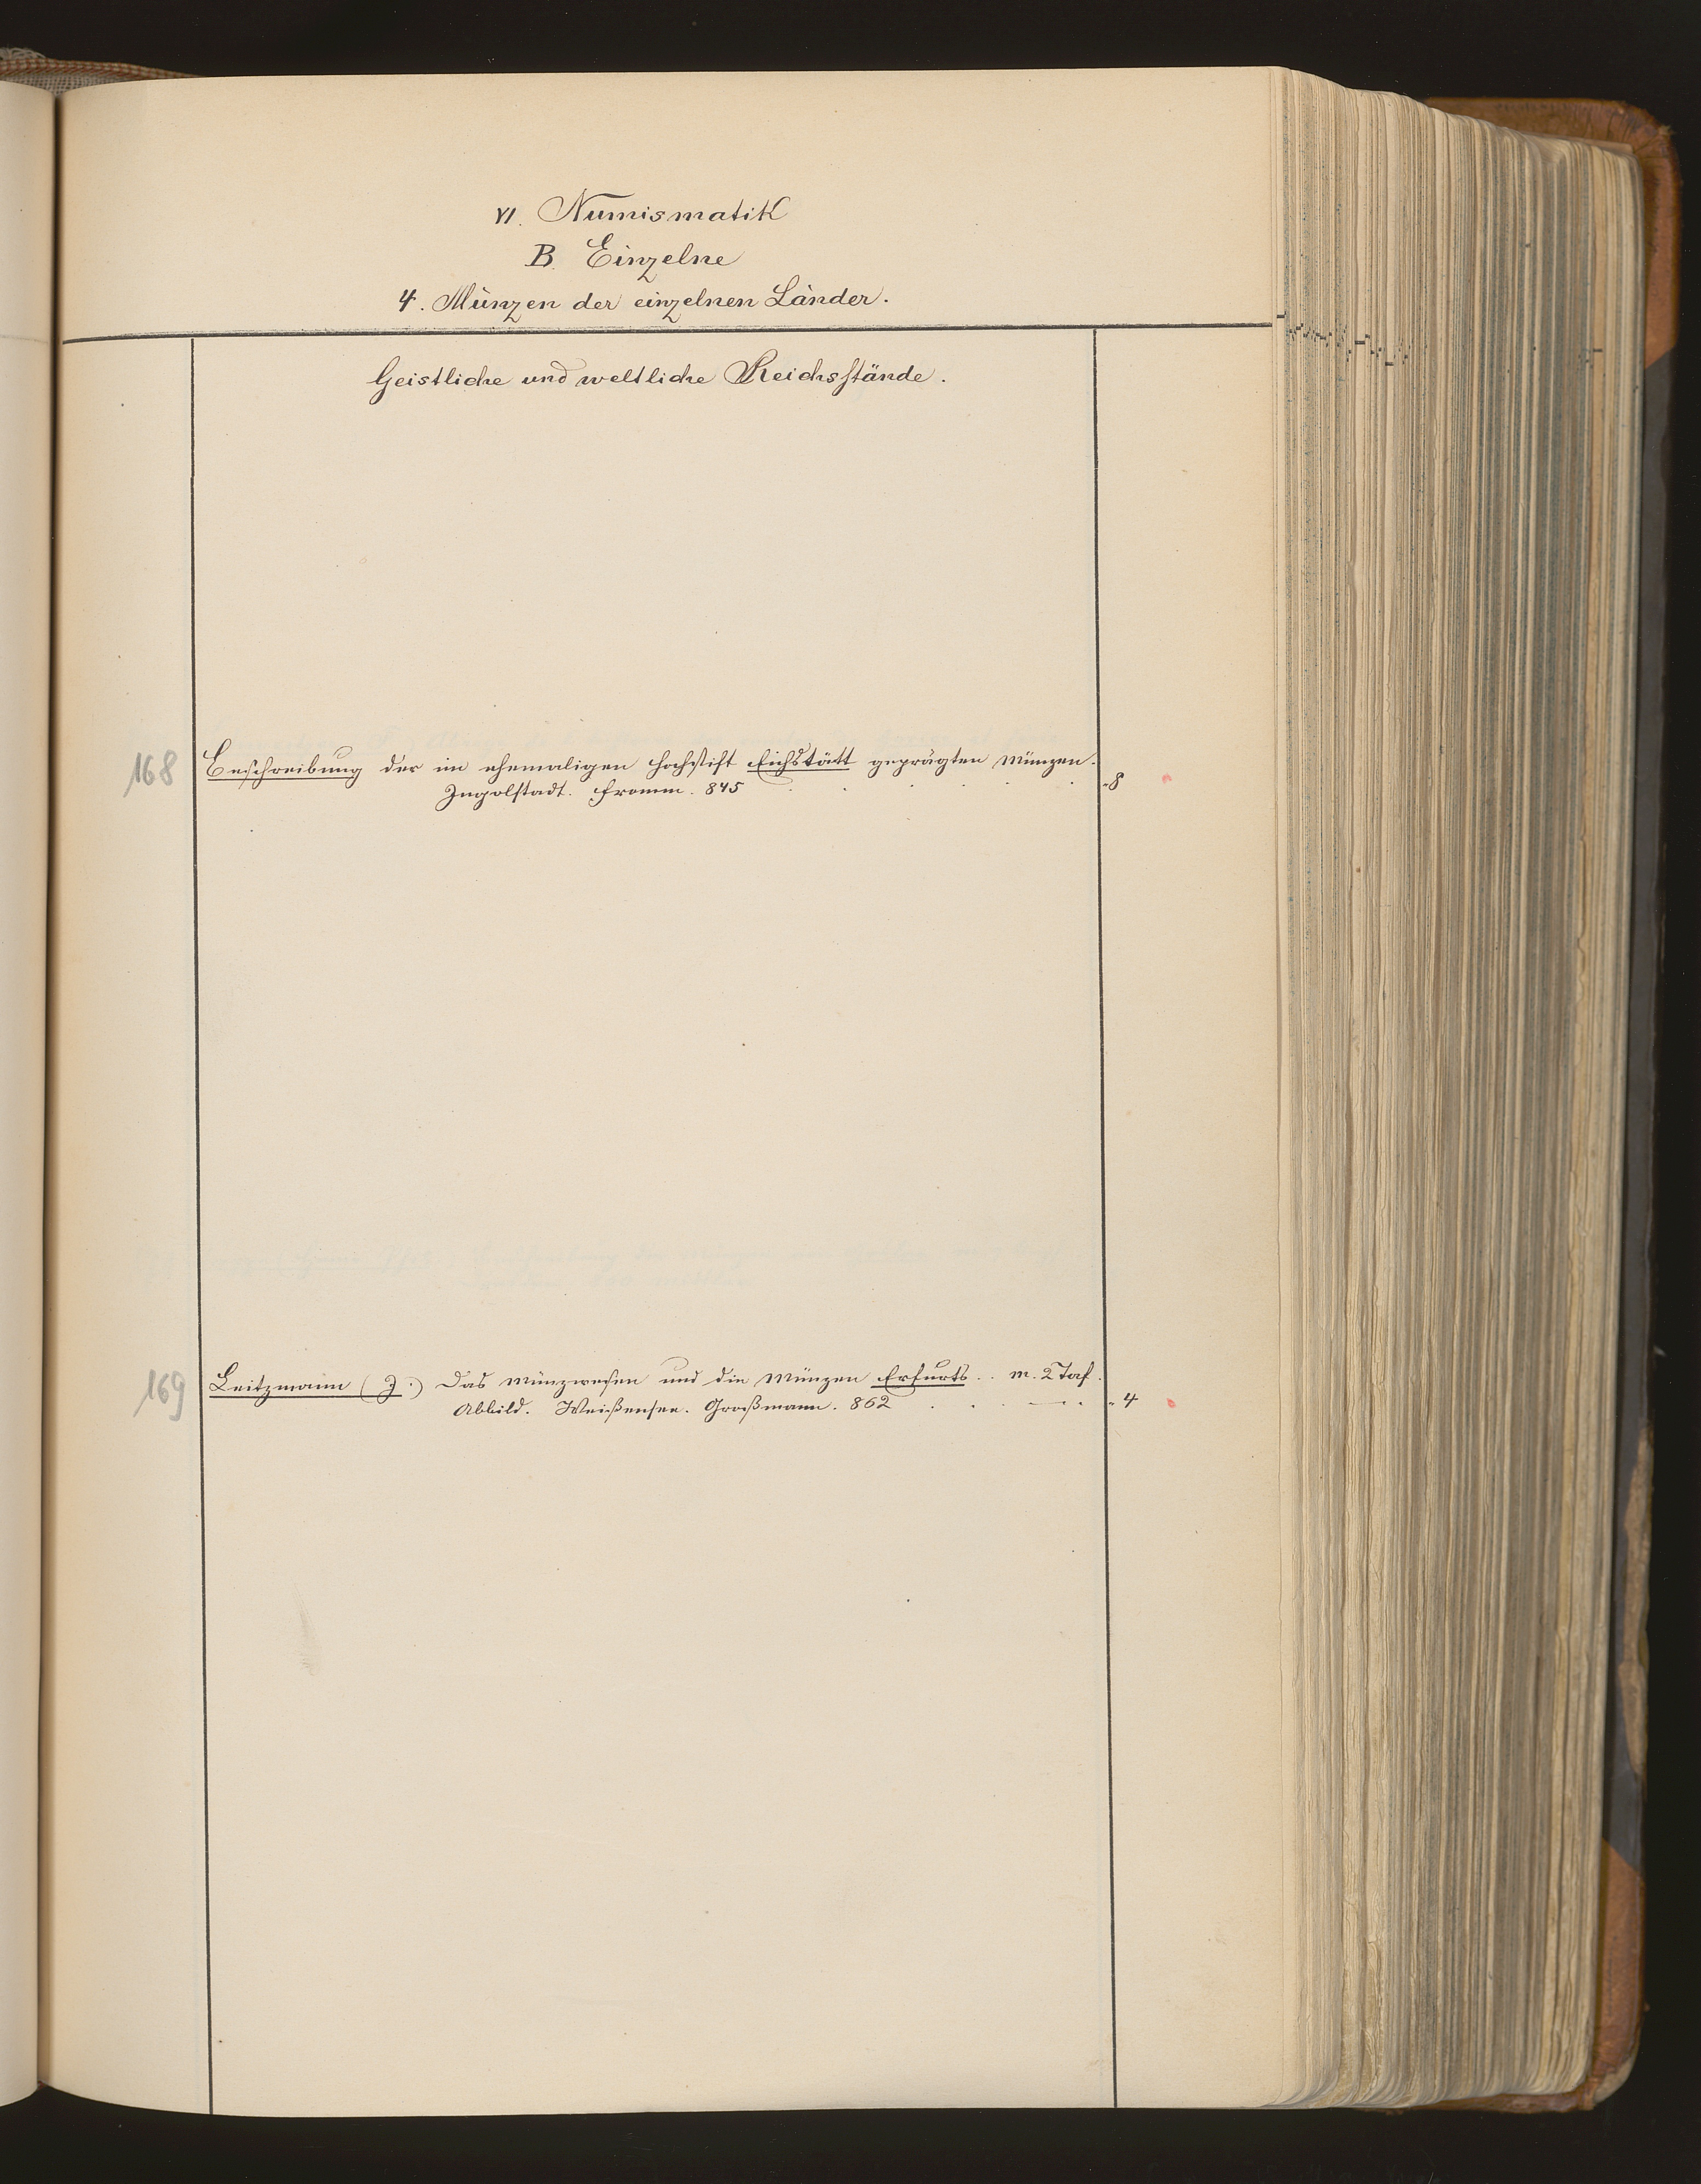 VI. Numismatik
B. Einzelne
4. Münzen der einzelnen Länder.
Geistliche und weltliche Reichsstände.
168 Beschreibung der im ehemaligen Hochstift Eichstätt geprägten Münzen.
Ingolstadt. Fromm. 845 . . . . . . 8
169 Leitzmann (J.) Das Münzwesen und die Münzen Erfurts. . m. 2 Taf.
Abbild. Weißensee. Großmann. 862 . . . — . . 4